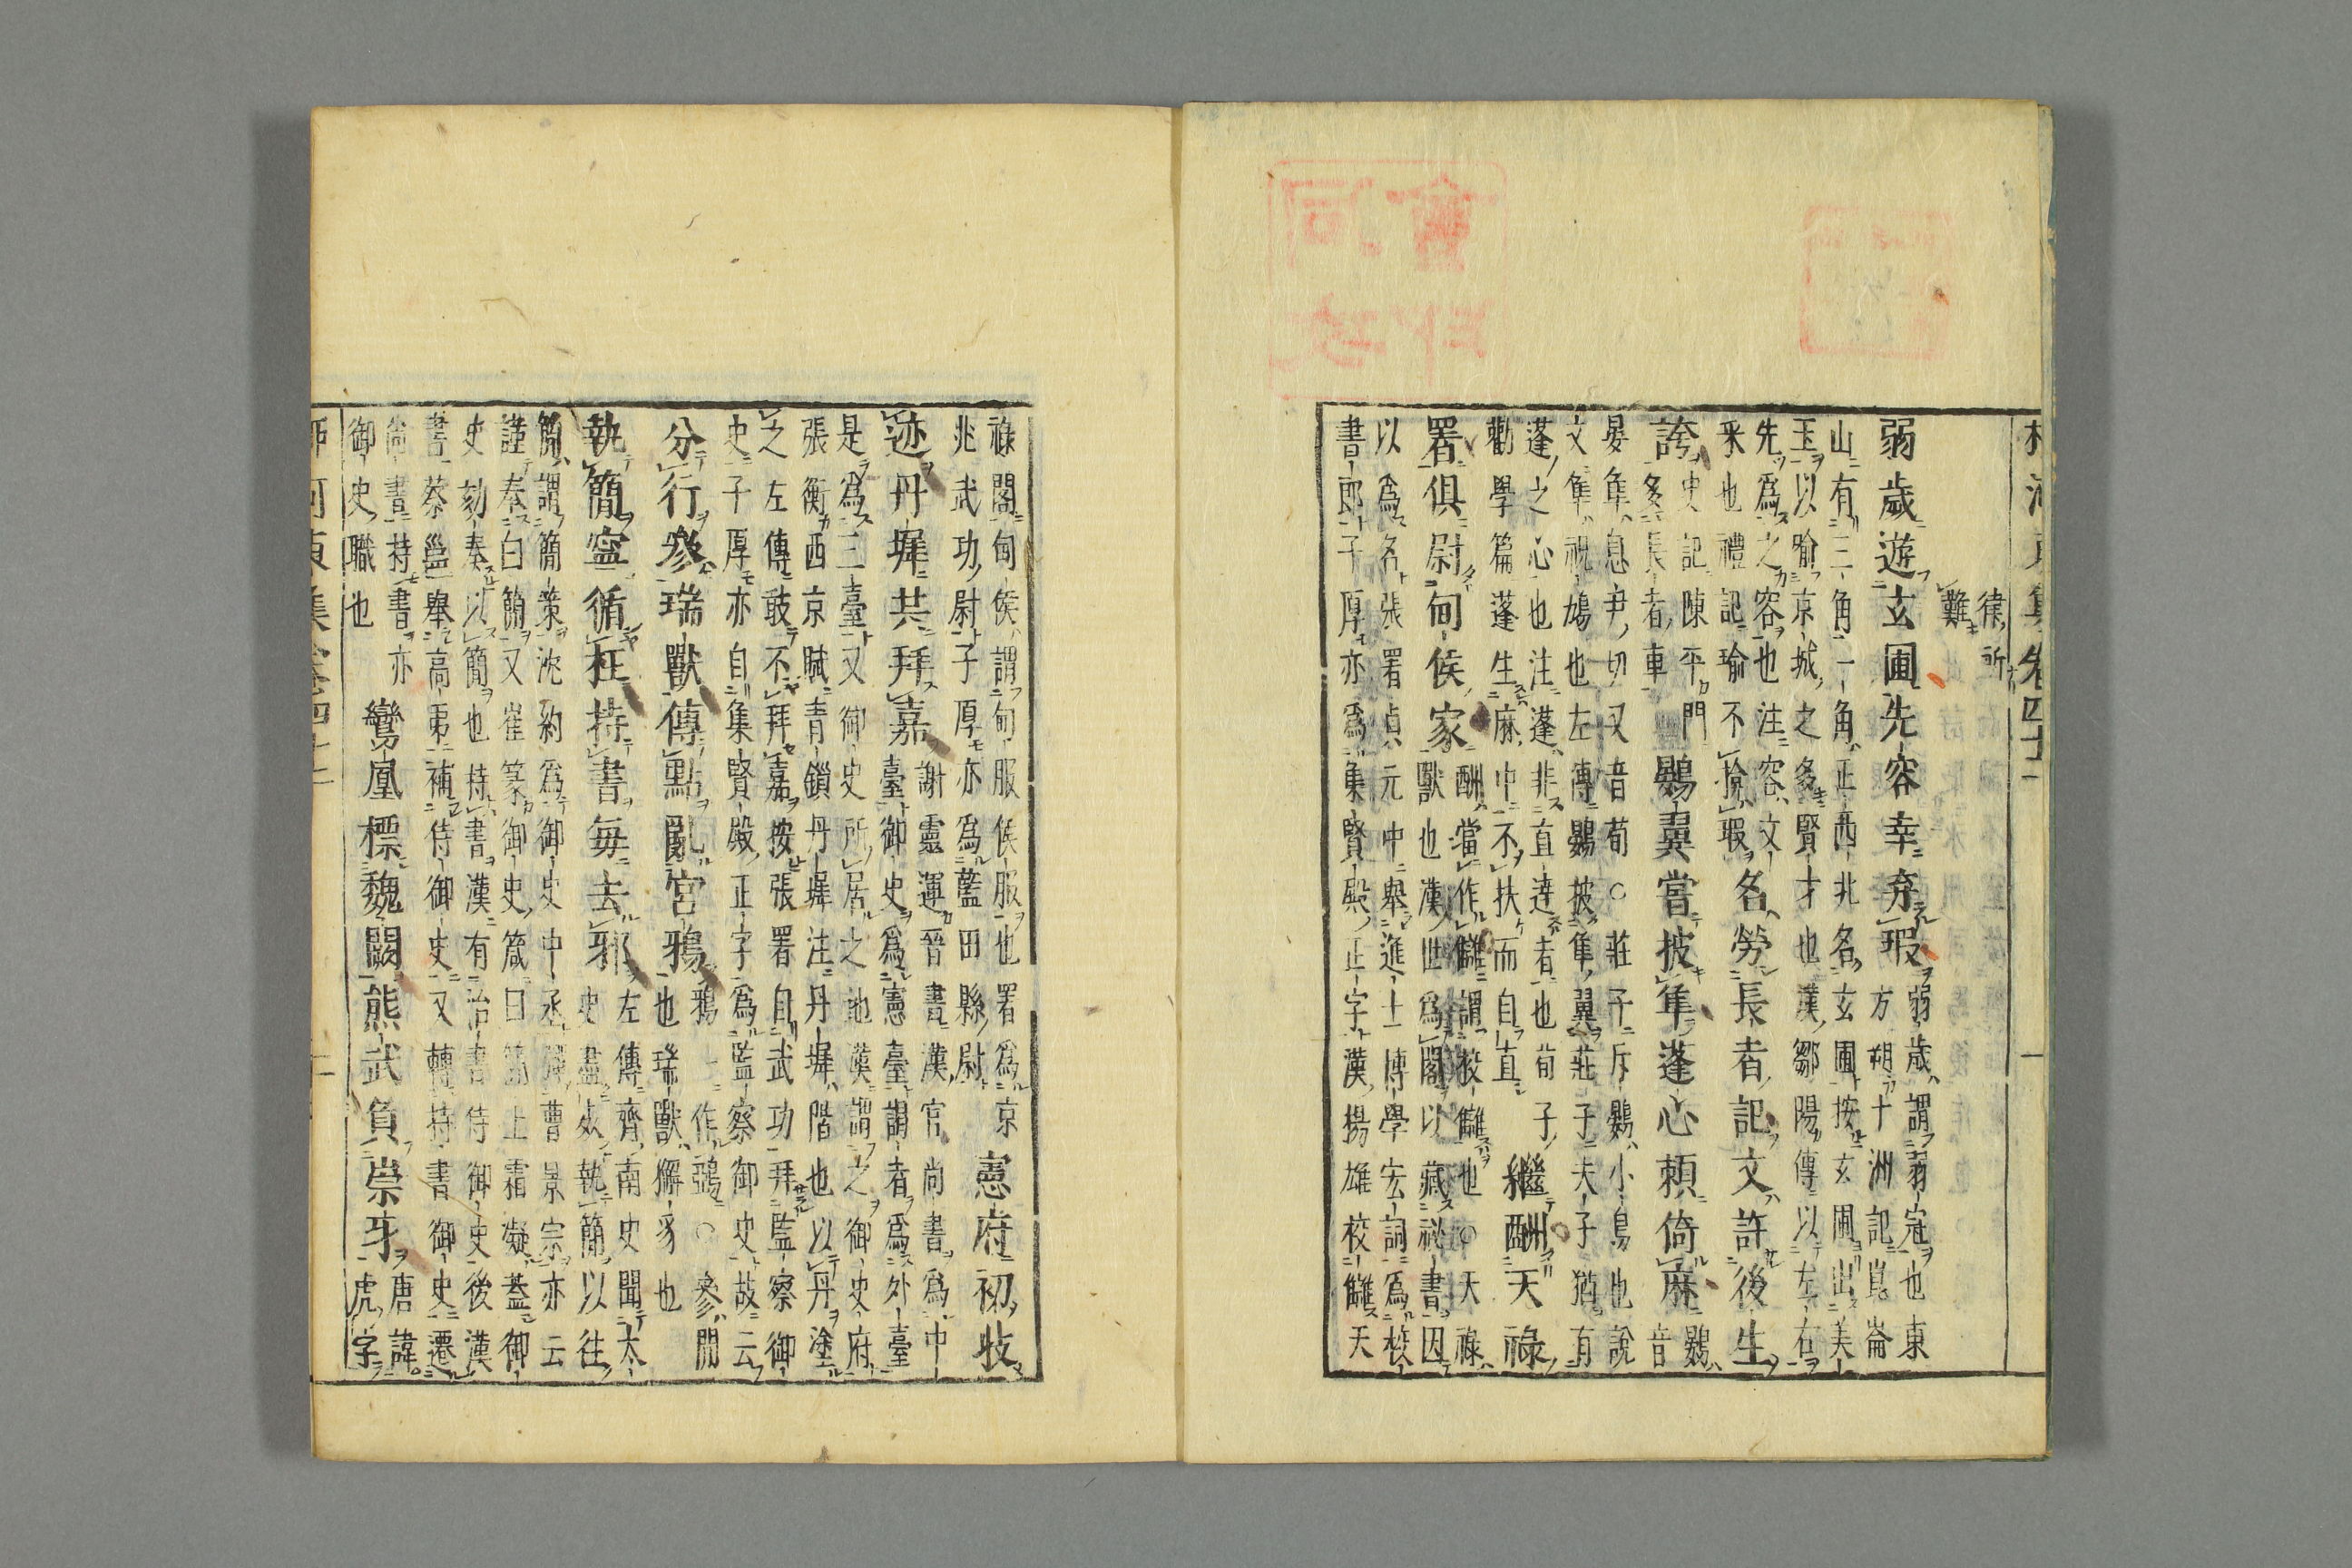 柳河東集卷四十二 一
律所
難
弱歲遊玄圃先容幸弃瑕
弱歲謂弱冠也東
方朔十洲記崑崙
山有三角一角正西北名玄圃按玄圃出美
玉以喻京城之多賢才也漢鄒陽傳以左右
先爲之容也注容文
釆也禮記瑜不揜瑕
名勞長者記文許後生
誇
史記陳平門
多長者車
鷃翼嘗披隼蓬心頼倚麻
鷃
音
晏隼息尹切又音荀○莊子斥鷃小鳥也說
文隼祝鳩也左傳鷃披隼翼莊子夫子猶有
蓬之心也注蓬非直達者也荀子
勸學篇蓬生麻中不扶而自直
繼酬天祿
署俱尉甸侯家
酬當作讎謂校讎也○天祿
獸也漢世爲閣以藏祕書因
以爲名張署貞元中舉進士博學宏詞爲校
書郎子厚亦爲集賢殿正字漢揚雄校讎天
祿閣甸侯謂甸服侯服也署爲京
兆武功尉子厚亦爲藍田縣尉
憲府初收
迹丹墀共拜嘉
謝靈運晉書漢官尚書爲中
臺御史爲憲臺謂者爲外臺
是爲三臺又御史所居之地漢謂之御史府
張衡西京賦青鎖丹墀注丹墀階也以丹塗
之左傳敢不拜嘉按張署自武功拜監察御
史子厚亦自集賢殿正字爲監察御史故云
分行參瑞獸傳點亂宮鴉
鴉一作鵶○參間
也瑞獸獬豸也
執簡寧循枉持書每去邪
左傳齊南史聞太
史盡死執簡以往
簡謂簡策沈約爲御史中丞彈曹景宗亦云
謹奉白簡又崔篆御史箴曰簡上霜凝蓋御
史劾奏以簡也持書漢有治書侍御史後漢
書蔡邕舉高第補侍御史又轉持書御史遷
尚書持書亦
御史職也
鸞凰標魏闕熊武負崇牙
唐諱
虎字
柳河東集卷四十二 一